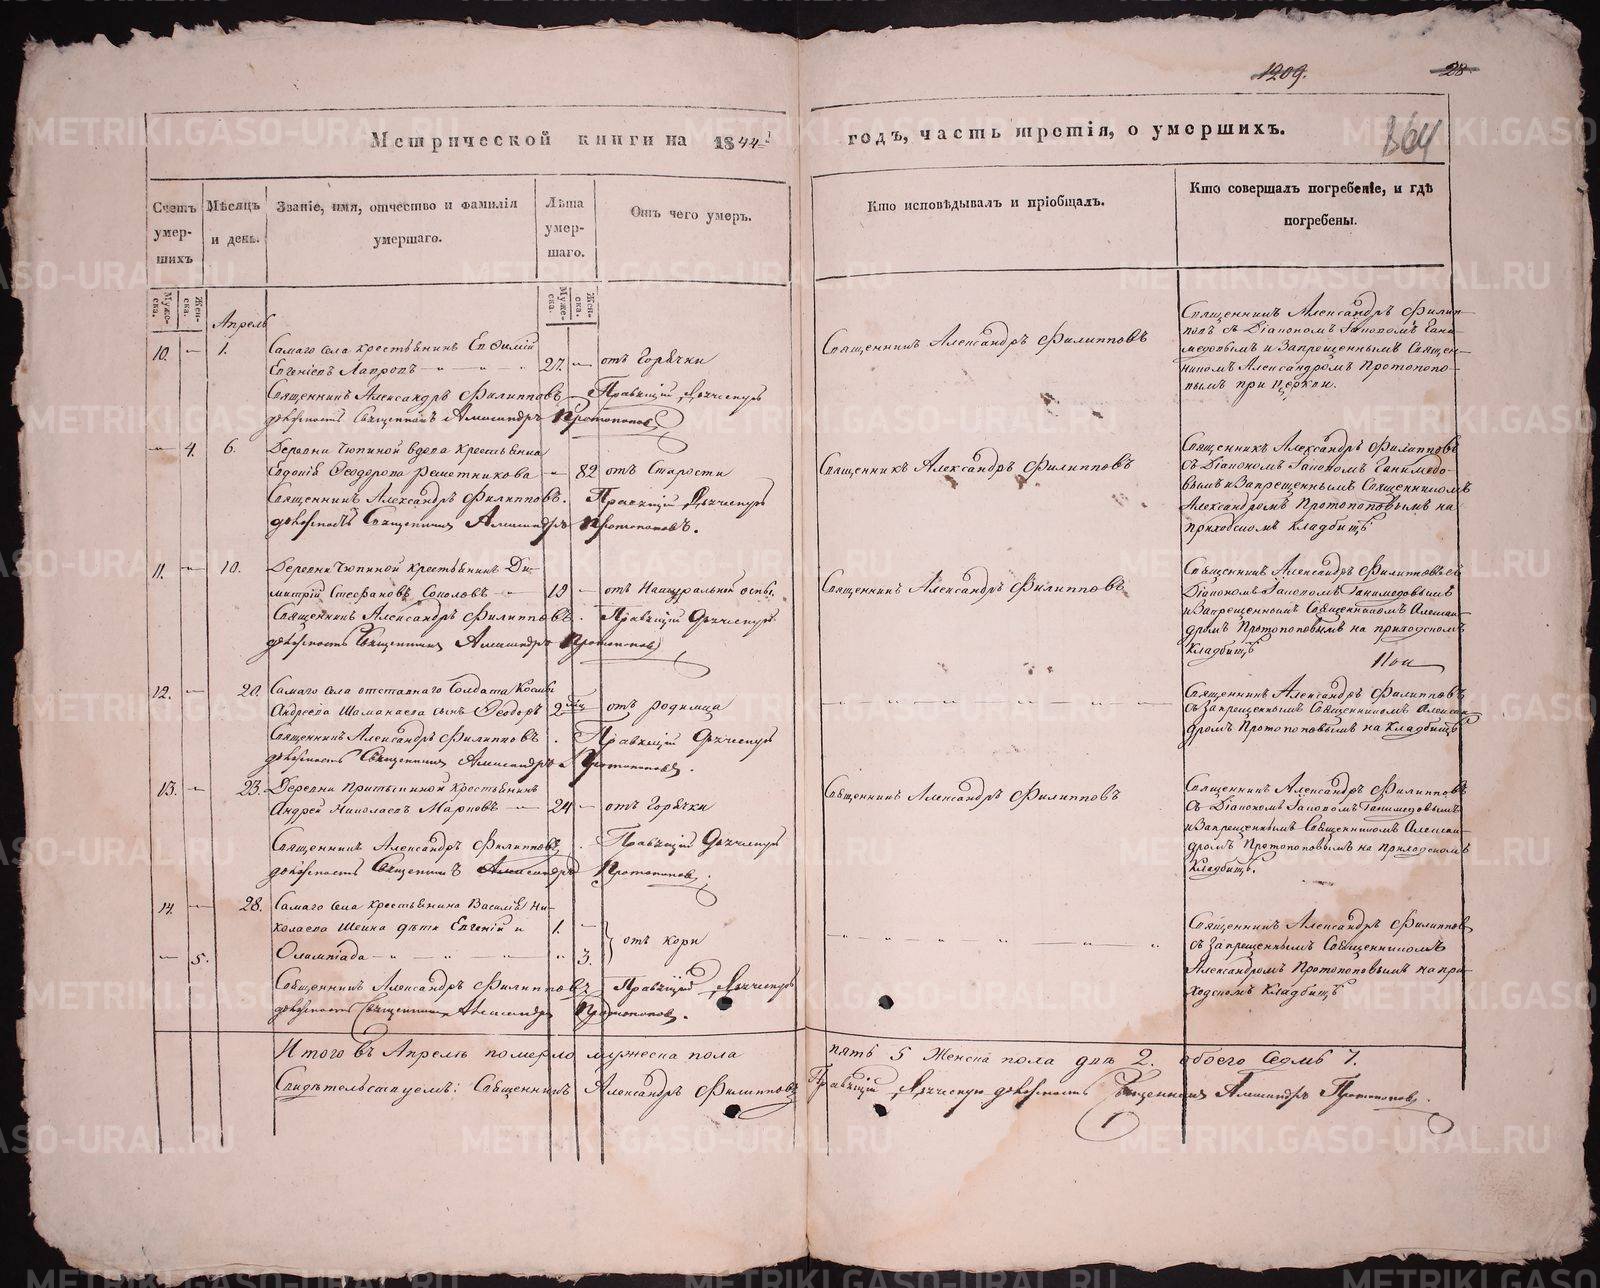 1209.
28
Метрической книги на 1844й
годъ, часть третія, о умершихъ.
364
Счетъ умер- шихъ
Мѣсяцъ и день.
Званіе, имя, отчество и фамилія умершаго.
Лѣта умер- шаго.
Отъ чего умеръ.
Кто исповѣдывалъ и пріобщалъ.
Кто совершалъ погребеніе, и гдѣ погребены.
Муже- ска.
Жен- ска.
Муже- ска.
Жен- ска.
Апрель
10. — 1. Самаго села крестьянинъ Евѳимій
Евгеніевъ Лавровъ 27. — отъ Горячки
Священникъ Александръ Филипповъ
Священникъ Александръ Филип-
повъ съ Діакономъ Іаковомъ Гани-
медовымъ и Запрещеннымъ Священ-
никомъ Александромъ Протопопо-
вымъ при церкви.
Священникъ Александръ Филипповъ Правящій Дьяческую
должность Священникъ Александръ Протопоповъ
— 4. 6. Деревни Чюпиной вдова крестьянка
Евдокія Ѳеодорова Решетникова — 82 отъ Старости
Священникъ Александръ Филипповъ
Священникъ Александръ Филипповъ
съ Діакономъ Іаковомъ Ганимедо-
вымъ и Запрещеннымъ Священникомъ
Александромъ Протопоповымъ на
приходскомъ кладбищѣ
Священникъ Александръ Филипповъ. Правящій Дьяческую
должность Священникъ Александръ Протопоповъ.
11. — 10. Деревни Чюпиной крестьянинъ Ди-
митрій Стефановъ Соколовъ 19 — отъ Натуральной оспы.
Священникъ Александръ Филипповъ
Священникъ Александръ Филипповъ съ
Діакономъ Іаковомъ Ганимедовымъ
и Запрещеннымъ Священникомъ Алексан-
дромъ Протопоповымъ на приходскомъ
кладбищѣ
Священникъ Александръ Филипповъ. Правящій Дьяческую
должность Священникъ Александръ Протопоповъ
12. — 20. Самаго села отставнаго Солдата Космы
Андреева Шаманаева сынъ Ѳеодоръ 2 отъ родимца
Священникъ Александръ Филипповъ
съ Запрещеннымъ Священникомъ Алексан-
дромъ Протопоповымъ на Кладбищѣ
Священникъ Александръ Филипповъ. Правящій Дьяческую
должность Священникъ Александръ Протопоповъ.
13. — 23. Деревни Притыкиной крестьянинъ
Андрей Николаевъ Марковъ 24 — отъ Горячки
Священникъ Александръ Филипповъ
Священникъ Александръ Филипповъ
съ Діакономъ Іаковомъ Ганимедовымъ
и Запрещеннымъ Священникомъ Алексан-
дромъ Протопоповымъ на приходскомъ
Кладбищѣ.
Священникъ Александръ Филипповъ. Правящій Дьяческую
должность Священникъ Александръ Протопоповъ.
14. — 28. Самаго села крестьянина Василія Ни-
колаева Шеина дѣти Евгеній и 1. —
— 5. Олимпіада 3. отъ кори
Священникъ Александръ Филипповъ
съ Запрещеннымъ Священникомъ
Александромъ Протопоповымъ на при-
ходскомъ Кладбищѣ
Священникъ Александръ Филипповъ Правящій Дьяческую
должность Священникъ Александръ Протопоповъ.
Итого въ Апрелѣ померло мужеска пола пять 5 Женска пола двѣ 2. обоего Седмь 7.
Свидѣтельствуемъ: Священникъ Александръ Филипповъ Правящій Дьяческую должность Священникъ Александръ Протопоповъ.
METRIKI.GASO-URAL.RU